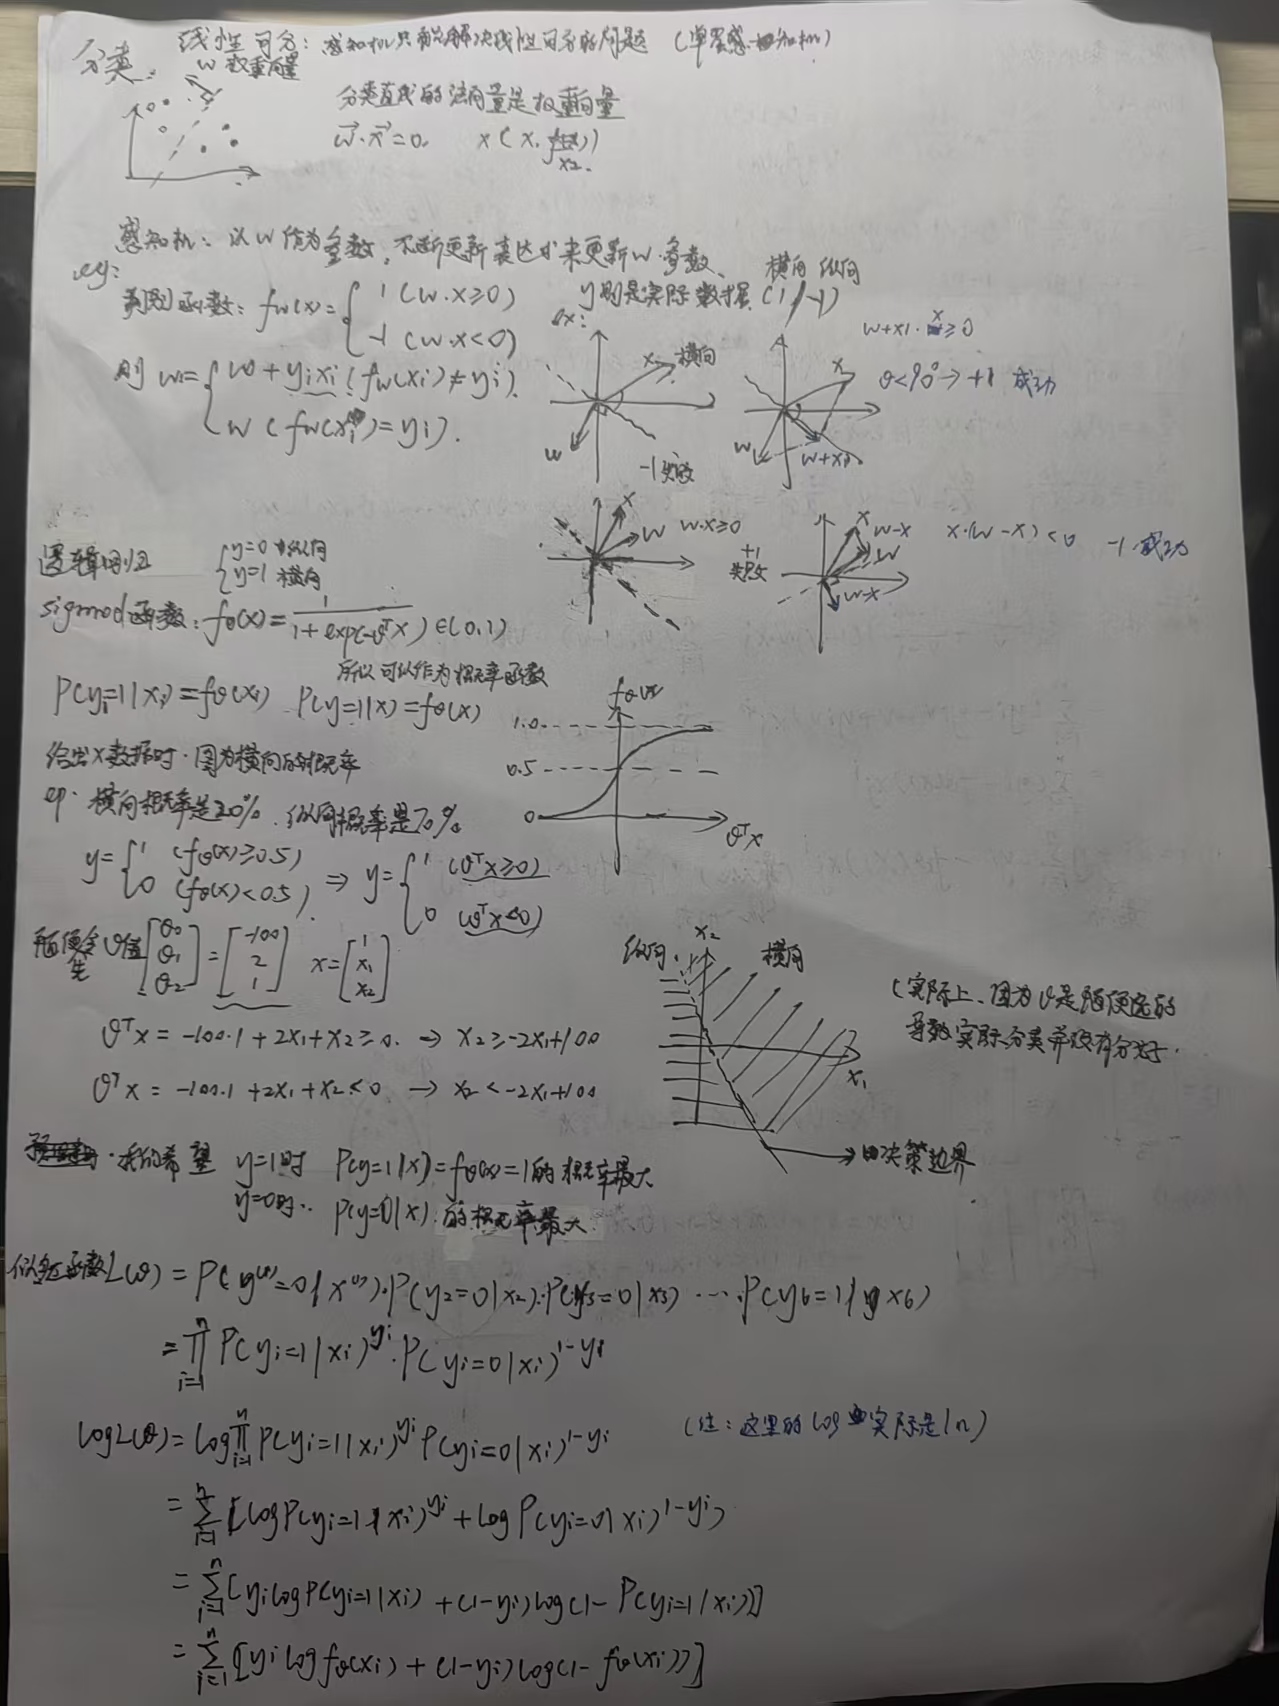 分类: 线性可分: 感知机只能解决线性可分的问题 (单层感知机)
w 权重向量
分类直线的法向量是权重向量
w·x=0. x(x₁ x₂)
感知机: 以w作为参数,不断更新表达式来更新w参数、
eg: 横向 纵向
判别函数: fw(x)={1 (w·x≥0) y则是实际数据 (1/-1)
-1 (w·x<0)
则 w={w+yixi (fw(xi)≠yi).
w (fw(xi)=yi).
ex:
x 横向
w
-1 失败
w+x)·x≥0
θ<90°→+1 成功
x
w
w+x)
x
w w·x≥0
+1
失败
x w-x
w
w-x
x·(w-x)<0 -1 成功
逻辑回归 {y=0 纵向
y=1 横向
sigmod函数: fθ(x)=1/(1+exp(-θᵀx)) ∈(0,1)
所以可以作为概率函数
P(yi=1|xi)=fθ(xi) P(y=1|x)=fθ(x)
给出x数据时·图为横向的概率
ep· 横向概率是30%.纵向概率是70%
fθ(x)
1.0
0.5
0
θᵀx
y={1 (fθ(x)≥0.5) ⇒ y={1 (θᵀx≥0)
0 (fθ(x)<0.5) 0 (θᵀx<0)
随便全θ值 [θ₀ θ₁ θ₂]=[-100 2 1] x=[1 x₁ x₂]
先
θᵀx=-100·1+2x₁+x₂≥0. → x₂≥-2x₁+100
θᵀx=-100·1+2x₁+x₂<0 → x₂<-2x₁+100
纵向. x₂ 横向
x₁
决策边界
(实际上.因为θ是随便选的
导致实际分类并没有分好.
·我们希望 y=1时 P(y=1|x)=fθ(x)=1的概率最大
y=0时.. P(y=0|x)的概率最大
似然函数L(θ)=P(y⁽¹⁾=0|x⁽¹⁾)·P(y₂=0|x₂)·P(y₃=0|x₃) ···P(y₆=1|x₆)
=∏ⁿᵢ₌₁ P(yi=1|xi)^yi·P(yi=0|xi)^1-yi
logL(θ)=log∏ⁿᵢ₌₁ P(yi=1|xi)^yi P(yi=0|xi)^1-yi (注:这里的log实际是ln)
=∑ⁿᵢ₌₁[logP(yi=1|xi)^yi+logP(yi=0|xi)^1-yi)
=∑ⁿᵢ₌₁[yilogP(yi=1|xi)+(1-yi)log(1-P(yi=1|xi))]
=∑ⁿᵢ₌₁[yilogfθ(xi)+(1-yi)log(1-fθ(xi))]